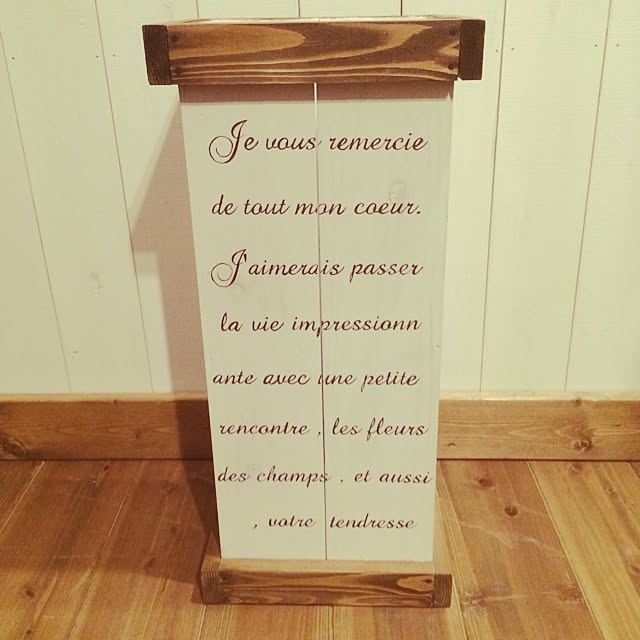 Je vous remercie
de tout mon coeur.
J'aimerais passer
la vie impressionn
ante avec une petite
rencontre , les fleurs
des champs , et aussi
, votre tendresse